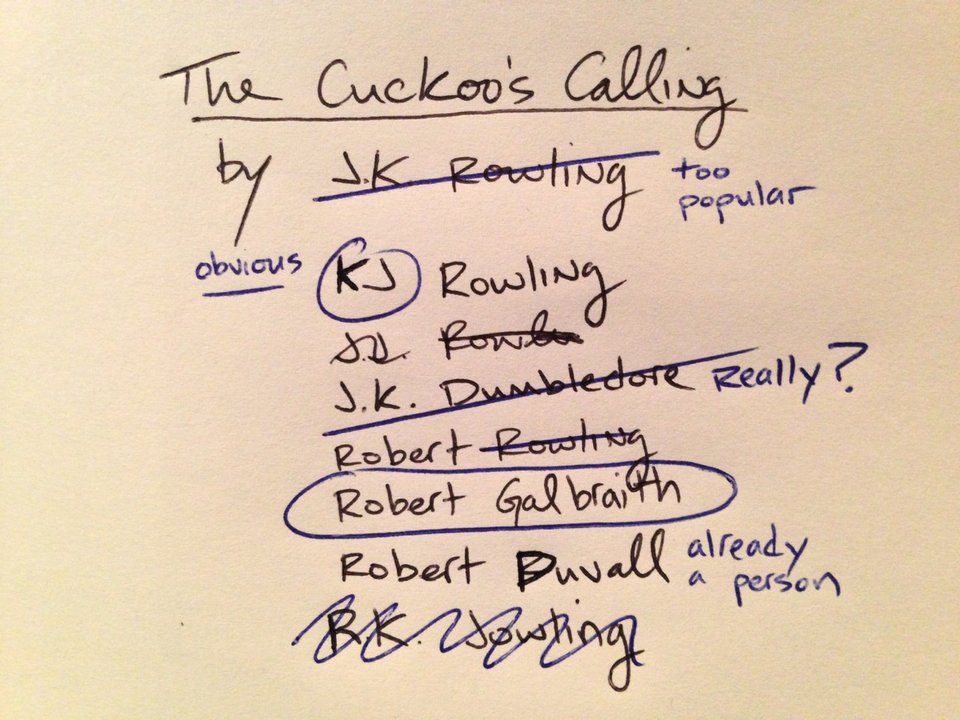 The Cuckoo's Calling
by J.K Rowling too popular
obvious KJ Rowling
J.D. Rowlin
J.K. Dumbledore Really?
Robert Rowling
Robert Galbraith
Robert Duvall already a person
R.K. Jowling